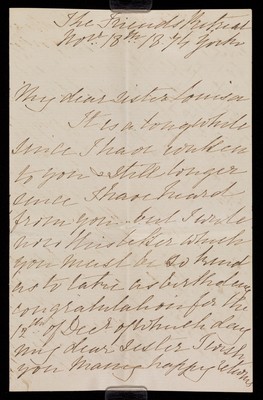 The Friends Retreat
Nov. 18th 18 York
My dear Sister Louisa
It is a long while
since I have written
to you & still longer
since I have heard
from you but I write
now this letter which
you must be so kind
as to take as birthday
congratulation for the
12th of Decr of which day
my dear Sister I wish
you many happy returns